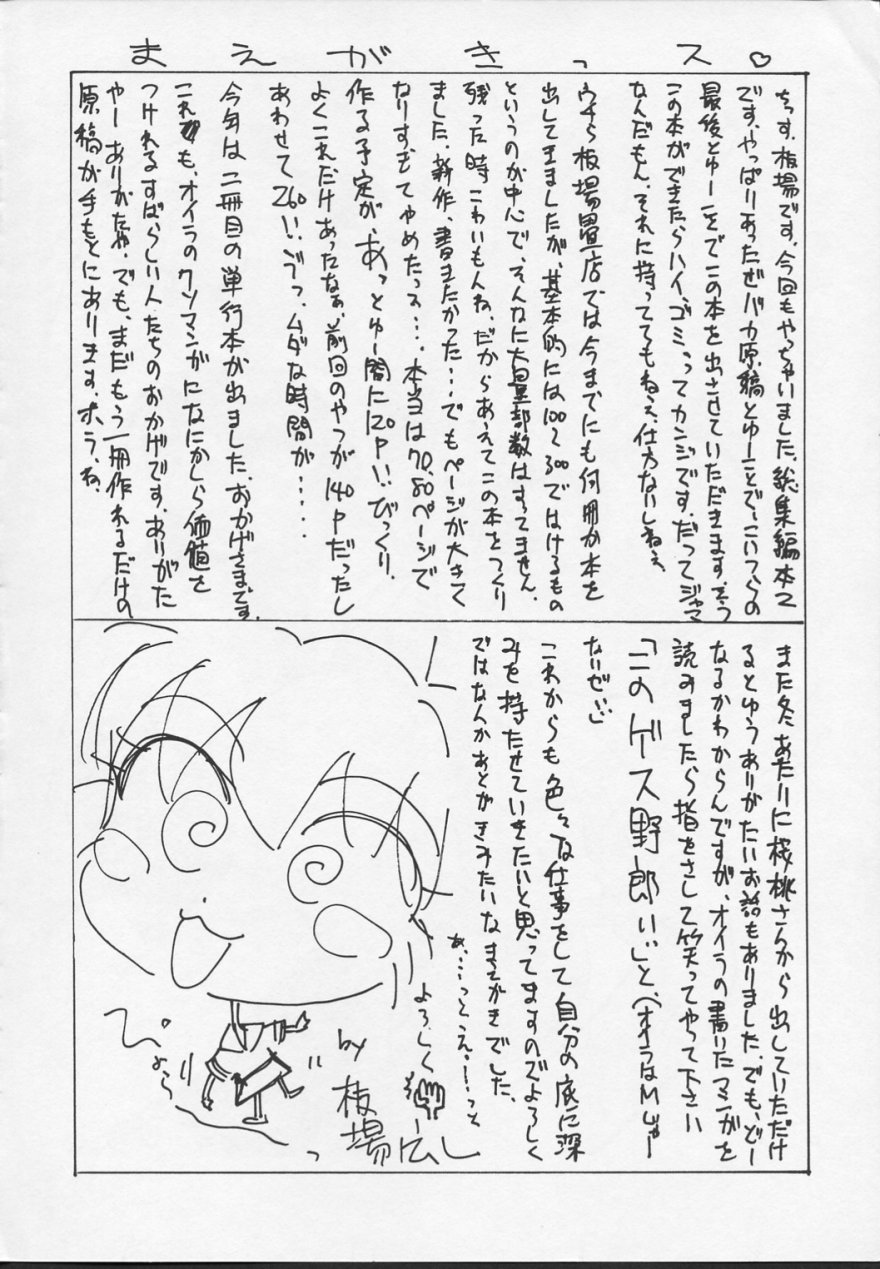 まえがきっス♡
ちっす、板場です。今回もやっちゃいました、総集編本って
です。やっぱりあったぜバカ原稿とゆーことで、こいつらの
最後とゆーことでこの本を出させていただきます。そう
この本ができたらハイ、ゴミってカンジです。だってジャマ
なんだもん、それに持っててもねえ、仕方ないしねえ
板場畳店では今までにも何冊か本を
出してきましたが、基本的には100〜300ではけるもの
というのが中心で、そんなに大量部数はすってません、
残った時こわいもんね、だからあえてこの本をつくり
ました、新作、書きたかった…でもページが大きく
なりすぎてやめたっス…、本当は70、80ページで
作る予定が、あっとゆー間に120P!!、びっくり、
よくこれだけあったなぁ、前回のやつが140Pだったし
あわせて260!!、ムダな時間が‥‥
今年は二冊目の単行本が出ました、おかげさまです。
これも、オイラのクソマンガになにかしら価値を
つけれるすばらしい人たちのおかげです、ありがた
やーありがたや、でも、まだもう一冊作れるだけの
原稿が手もとにあります、ホラ、ね、
また冬あたりに桜桃さんから出していただけ
るとゆうありがたいお話もありました、でも、どー
なるかわからんですが、オイラの書いたマンガを
読みましたら指をさして笑ってやって下さい
「このゲス野郎!!」と、(オイラはMじゃー
ないぜい)
これからも色々な仕事をして自分の底に深
みを持たせていきたいと思ってますのでよろしく
ではなんかあとがきみたいなまえがきでした、
あ、…っとえ、…っと
よろしく
by 板場広し
っ